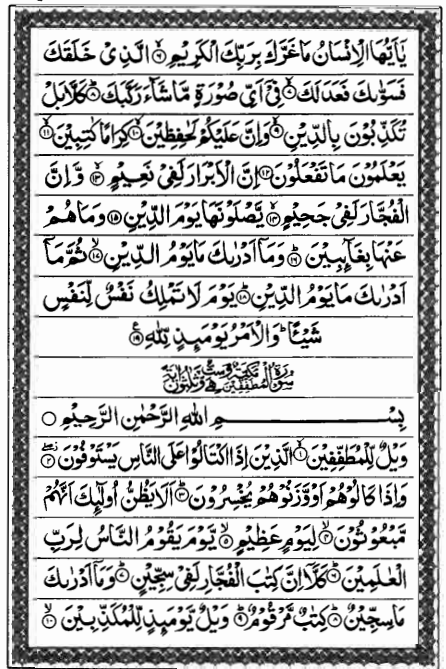 يٰۤاَيُّهَا الْاِنْسَانُ مَا غَرَّكَ بِرَبِّكَ الْكَرِيْمِ ۙ‏﴿۶﴾ الَّذِىْ خَلَقَكَ
فَسَوّٰٮكَ فَعَدَلَكَ ۙ‏﴿۷﴾ فِىْۤ اَىِّ صُوْرَةٍ مَّا شَآءَ رَكَّبَكَ ؕ‏﴿۸﴾ كَلَّا بَلْ
تُكَذِّبُوْنَ بِالدِّيْنِ ۙ‏﴿۹﴾ وَاِنَّ عَلَيْكُمْ لَحٰفِظِيْنَ ۙ‏﴿۱۰﴾ كِرَامًا كَاتِبِيْنَ ۙ‏﴿۱۱﴾
يَعْلَمُوْنَ مَا تَفْعَلُوْنَ‏﴿۱۲﴾ اِنَّ الْاَبْرَارَ لَفِىْ نَعِيْمٍ ۚ‏﴿۱۳﴾ وَّاِنَّ
الْفُجَّارَ لَفِىْ جَحِيْمٍ ۚۖ‏﴿۱۴﴾ يَّصْلَوْنَهَا يَوْمَ الدِّيْنِ‏﴿۱۵﴾ وَمَا هُمْ
عَنْهَا بِغَآٮِٕبِيْنَ ؕ‏﴿۱۶﴾ وَمَاۤ اَدْرٰٮكَ مَا يَوْمُ الدِّيْنِ ۙ‏﴿۱۷﴾ ثُمَّ مَاۤ
اَدْرٰٮكَ مَا يَوْمُ الدِّيْنِ ؕ‏﴿۱۸﴾ يَوْمَ لَا تَمْلِكُ نَفْسٌ لِّنَفْسٍ
شَيْـًٔا ؕ وَالْاَمْرُ يَوْمَٮِٕذٍ لِّلّٰهِ‏﴿۱۹﴾
سُوْرَةُ الْمُطَفِّفِيْنَ مَكِّيَّةٌ وَّهِىَ سِتٌّ وَّثَلٰثُوْنَ اٰيَةً
بِسْمِ اللّٰهِ الرَّحْمٰنِ الرَّحِيْمِ
وَيْلٌ لِّلْمُطَفِّفِيْنَ ۙ‏﴿۱﴾ الَّذِيْنَ اِذَا اكْتَالُوْا عَلَى النَّاسِ يَسْتَوْفُوْنَ ۖ‏﴿۲﴾
وَاِذَا كَالُوْهُمْ اَوْ وَّزَنُوْهُمْ يُخْسِرُوْنَ ؕ‏﴿۳﴾ اَلَا يَظُنُّ اُولٰٓٮِٕكَ اَنَّهُمْ
مَّبْعُوْثُوْنَ ۙ‏﴿۴﴾ لِيَوْمٍ عَظِيْمٍ ۙ‏﴿۵﴾ يَّوْمَ يَقُوْمُ النَّاسُ لِرَبِّ
الْعٰلَمِيْنَ ؕ‏﴿۶﴾ كَلَّاۤ اِنَّ كِتٰبَ الْفُجَّارِ لَفِىْ سِجِّيْنٍ ؕ‏﴿۷﴾ وَمَاۤ اَدْرٰٮكَ
مَا سِجِّيْنٌ ؕ‏﴿۸﴾ كِتٰبٌ مَّرْقُوْمٌ ؕ‏﴿۹﴾ وَيْلٌ يَّوْمَٮِٕذٍ لِّلْمُكَذِّبِيْنَ ۙ‏﴿۱۰﴾